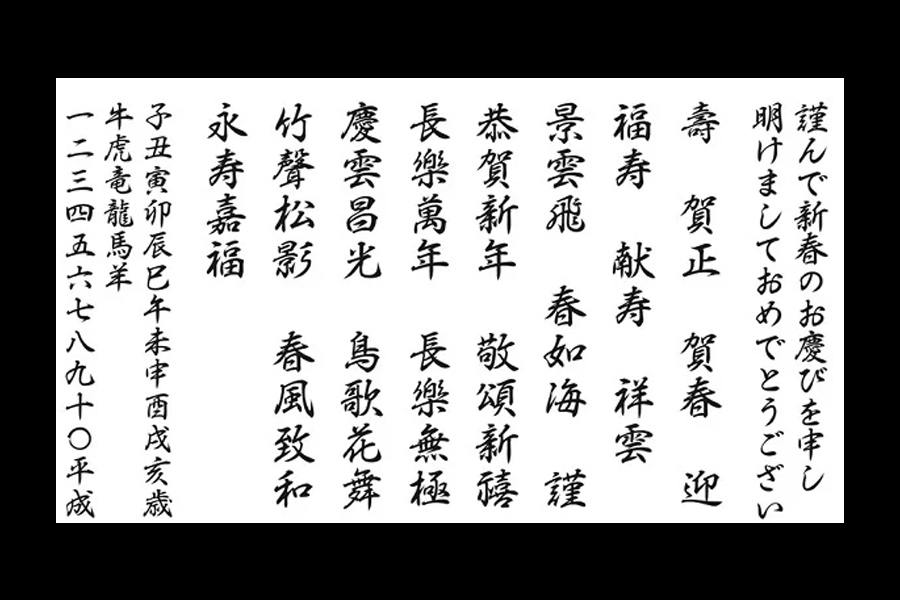 謹んで新春のお慶びを申し
明けましておめでとうござい
壽　賀正　賀春　迎
福寿　献寿　祥雲
景雲飛　春如海　謹
恭賀新年　敬頌新禧
長樂萬年　長樂無極
慶雲昌光　鳥歌花舞
竹聲松影　春風致和
永寿嘉福
子丑寅卯辰巳午未申酉戌亥歳
牛虎竜龍馬羊
一二三四五六七八九十〇平成